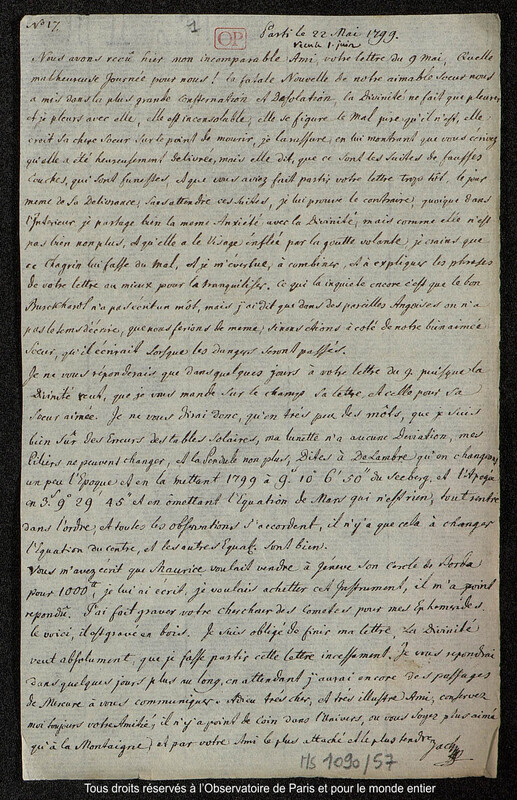 No 17.
1
OP
Parti le 22 Mai 1799.
recu le 1. juin
Nous avons reçû hier mon incomparable Ami, votre lettre du 9 Mai, Quelle
malheureuse Journée pour nous! la fatale Nouvelle de notre aimable Soeur nous
a mis dans la plus grande Consternation et Desolation, la Divinité ne fait que pleurer
et je pleurs avec elle, elle est inconsolable, elle se figure le Mal pire qu'il n'est, elle
croit sa chere Soeur sur le point de mourir, je la rassure, en lui montrant que vous écrivez
qu'elle a été heureusement Delivrée, mais elle dit, que ce sont les Suites de fausses
Couches, qui sont funestes, et que vous aviez fait partir votre lettre trop tôt, le jour
meme de sa Delivrance, sans attendre ces suites, je lui prouve le contraire, quoique dans
l'Interieur je partage bien la meme Anxieté avec la Divinité, mais comme elle n'est
pas bien non plus, et qu'elle a le Visage enflée par la goutte volante, je crains que
ce Chagrin lui fasse du Mal, et je m'évertue, à combiner, et à expliquer les phrases
de votre lettre au mieux pour la tranquiliser. Ce qui la inquiete encore c'est que le bon
Burckhardt n'a pas écrit un môt, mais j'ai dit que dans des pareilles Angoises on n'a
pas le tems d'écrire, que nous ferions le meme, si nous étions à coté de notre bien aimée
Soeur, qu'il écrirait lorsque les dangers seront passés.
Je ne vous réponderais que dans quelques jours à votre lettre du 9. puisque la
Divinité veut, que je vous mande sur le champs sa lettre, et celle pour sa
Soeur aimée. Je ne vous dirai donc, qu'en très peu des môts, que je suis
bien sûr des Erreurs des tables Solaires, ma lunette n'a aucune Deviation, mes
piliers ne peuvent changer, et la Pendule non plus, Dites à DeLambre qu'en changeant
un peu l'Epoque et en la mettant 1799 à 9. 10° 6' 50" du Seeberg, et l'Apogée
en 3s 9° 29' 45" et en ômettant l'Equation de Mars qui n'est rien, tout rentre
dans l'ordre, et toutes les observations s'accordent, il n'y a que cela à changer
l'Equation du centre, et les autres Equat. sont bien.
Vous m'avez écrit que Maurice voulait vendre à Geneve son Cercle de Borda
pour 1000tt, je lui ai écrit, je voulais achetter cet Instrument, il m'a point
repondu. J'ai fait graver votre chercheur des Cometes pour mes Ephemerides.
le voici, il est gravé en bois. Je suis obligé de finir ma lettre, La Divinité
veut absolument, que je fasse partir cette lettre incessament. Je vous repondrai
dans quelques jours plus au long, en attendant j'aurai encore des passages
de Mercure à vous communiquer. Adieu très cher, et très illustre Ami, conservez
moi toujours votre Amitié, il n'y a point de coin dans l'Univers, ou vous soyez plus aimé
qu'à la Montaigne, et par votre Ami le plus attaché et le plus tendre, Zach
Ms 1090/57
Tous droits réservés à l'Observatoire de Paris et pour le monde entier